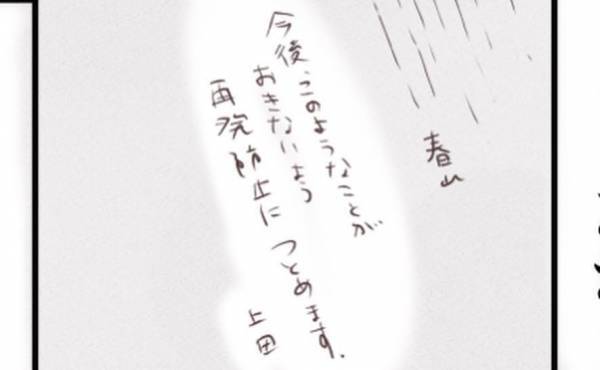 春山
今後このようなことが
おきないよう
再院防止に つとめます.
上田